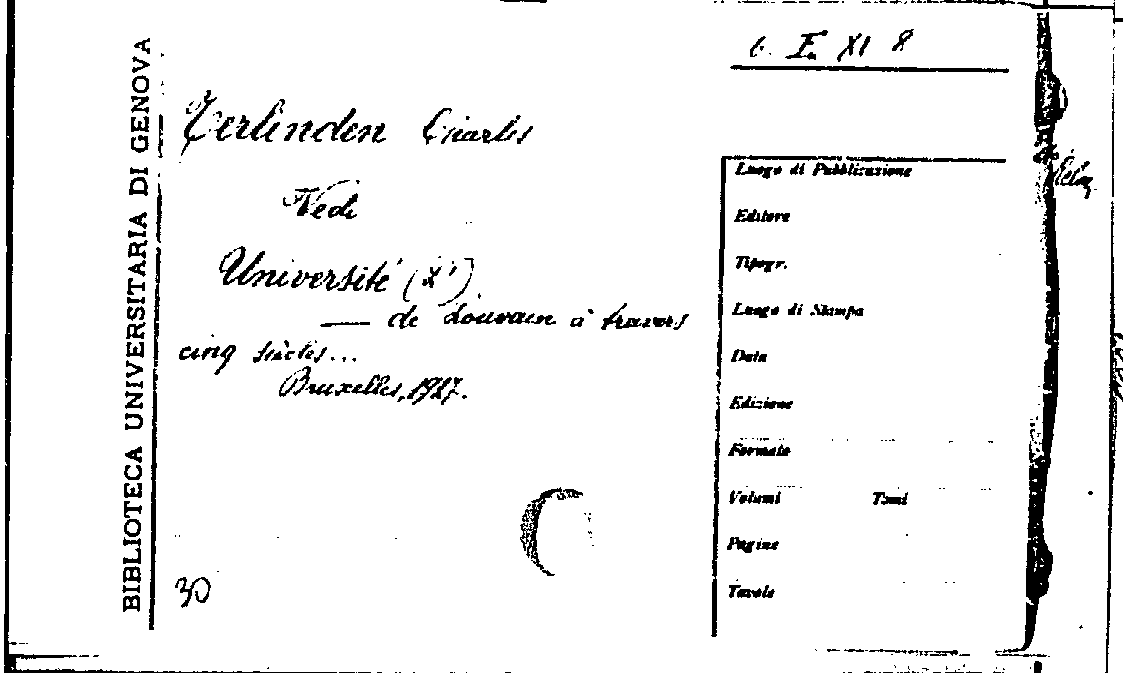 BIBLIOTECA UNIVERSITARIA DI GENOVA
6. F. XI 8
Terlinden Charles
Vedi
Université (L')
— de Louvain à travers
cinq siècles...
Bruxelles, 1927.
30
Luogo di Pubblicazione
Editore
Tipogr.
Luogo di Stampa
Data
Edizione
Formato
Volumi Tomi
Pagine
Tavole